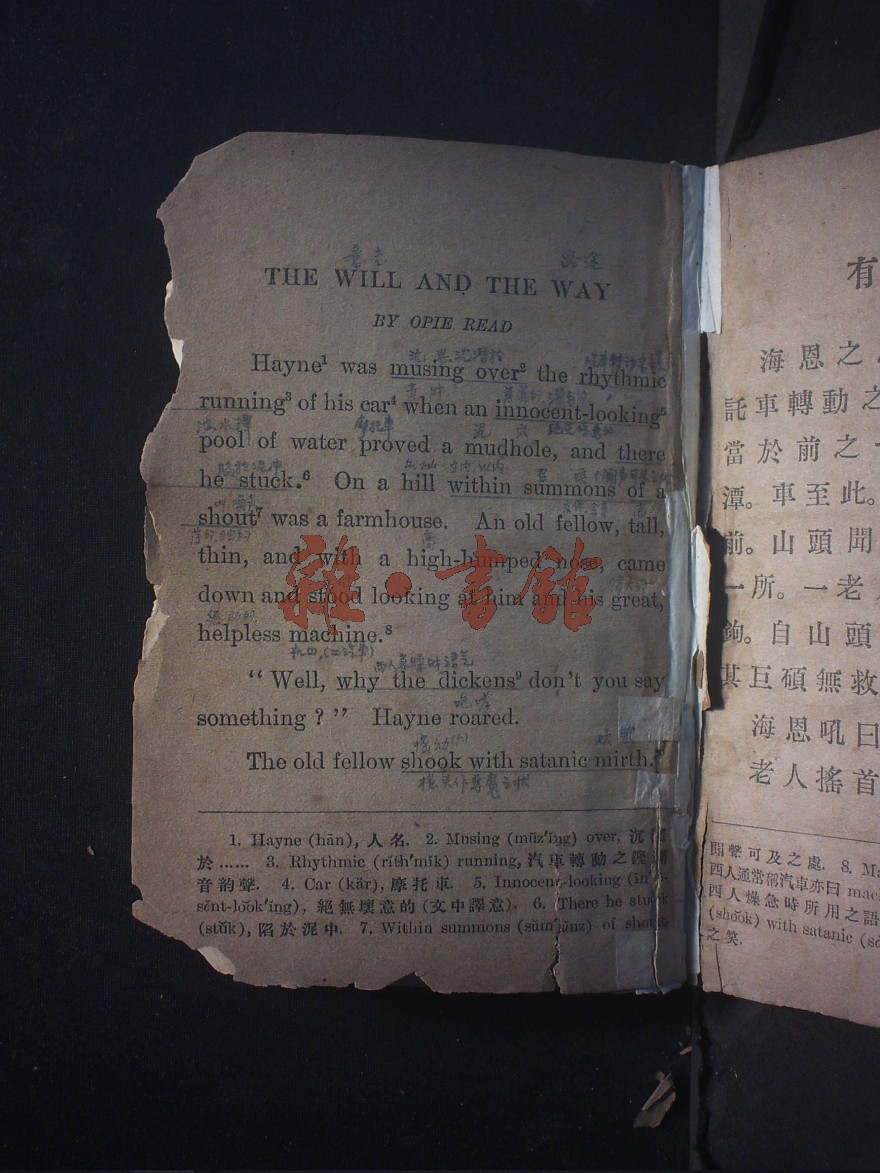 THE WILL AND THE WAY
BY OPIE READ
Hayne¹ was musing over² the rhythmic
running³ of his car⁴ when an innocent-looking⁵
pool of water proved a mudhole, and there
he stuck.⁶ On a hill within summons of a
shout⁷ was a farmhouse. An old fellow, tall,
thin, and with a high-humped nose, came
down and stood looking at him and his great,
helpless machine.⁸
“Well, why the dickens⁹ don't you say
something?” Hayne roared.
The old fellow shook with satanic mirth.
雜·書館
1. Hayne (hān), 人名. 2. Musing (mūz′ing) over, 沉
於…… 3. Rhythmic (rĭth′mĭk) running, 汽車轉動之
音韵聲. 4. Car (kär), 摩托車. 5. Innocent-looking (ĭn
sĕnt-lo͝ok′ing), 絕無壞意的 (文中譯意). 6. There he stuck
(stŭk), 陷於泥中. 7. Within summons (sŭm′ŭnz) of shout,
有
海恩之
託車轉動之
當於前之
潭。車至此。
前。山頭聞
一所。一老
鉤。自山頭
其巨碩無救
海恩吼曰
老人搖首
聞聲可及之處. 8. Ma
西人通常稱汽車亦曰 mac
西人燥急時所用之語
(sho͝ok) with satanic (sā
之笑.